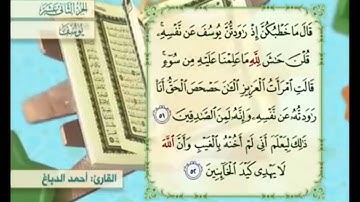 الجزء الثاني عشر
يوسف
قَالَ مَا خَطْبُكُنَّ إِذْ رَٰوَدتُّنَّ يُوسُفَ عَن نَّفْسِهِۦ ۚ
قُلْنَ حَٰشَ لِلَّهِ مَا عَلِمْنَا عَلَيْهِ مِن سُوٓءٍ ۚ
قَالَتِ ٱمْرَأَتُ ٱلْعَزِيزِ ٱلْـَٰٔنَ حَصْحَصَ ٱلْحَقُّ أَنَا۠
رَٰوَدتُّهُۥ عَن نَّفْسِهِۦ وَإِنَّهُۥ لَمِنَ ٱلصَّٰدِقِينَ ٥١
ذَٰلِكَ لِيَعْلَمَ أَنِّى لَمْ أَخُنْهُ بِٱلْغَيْبِ وَأَنَّ ٱللَّهَ
لَا يَهْدِى كَيْدَ ٱلْخَآئِنِينَ ٥٢
القارئ: أحمد الدباغ